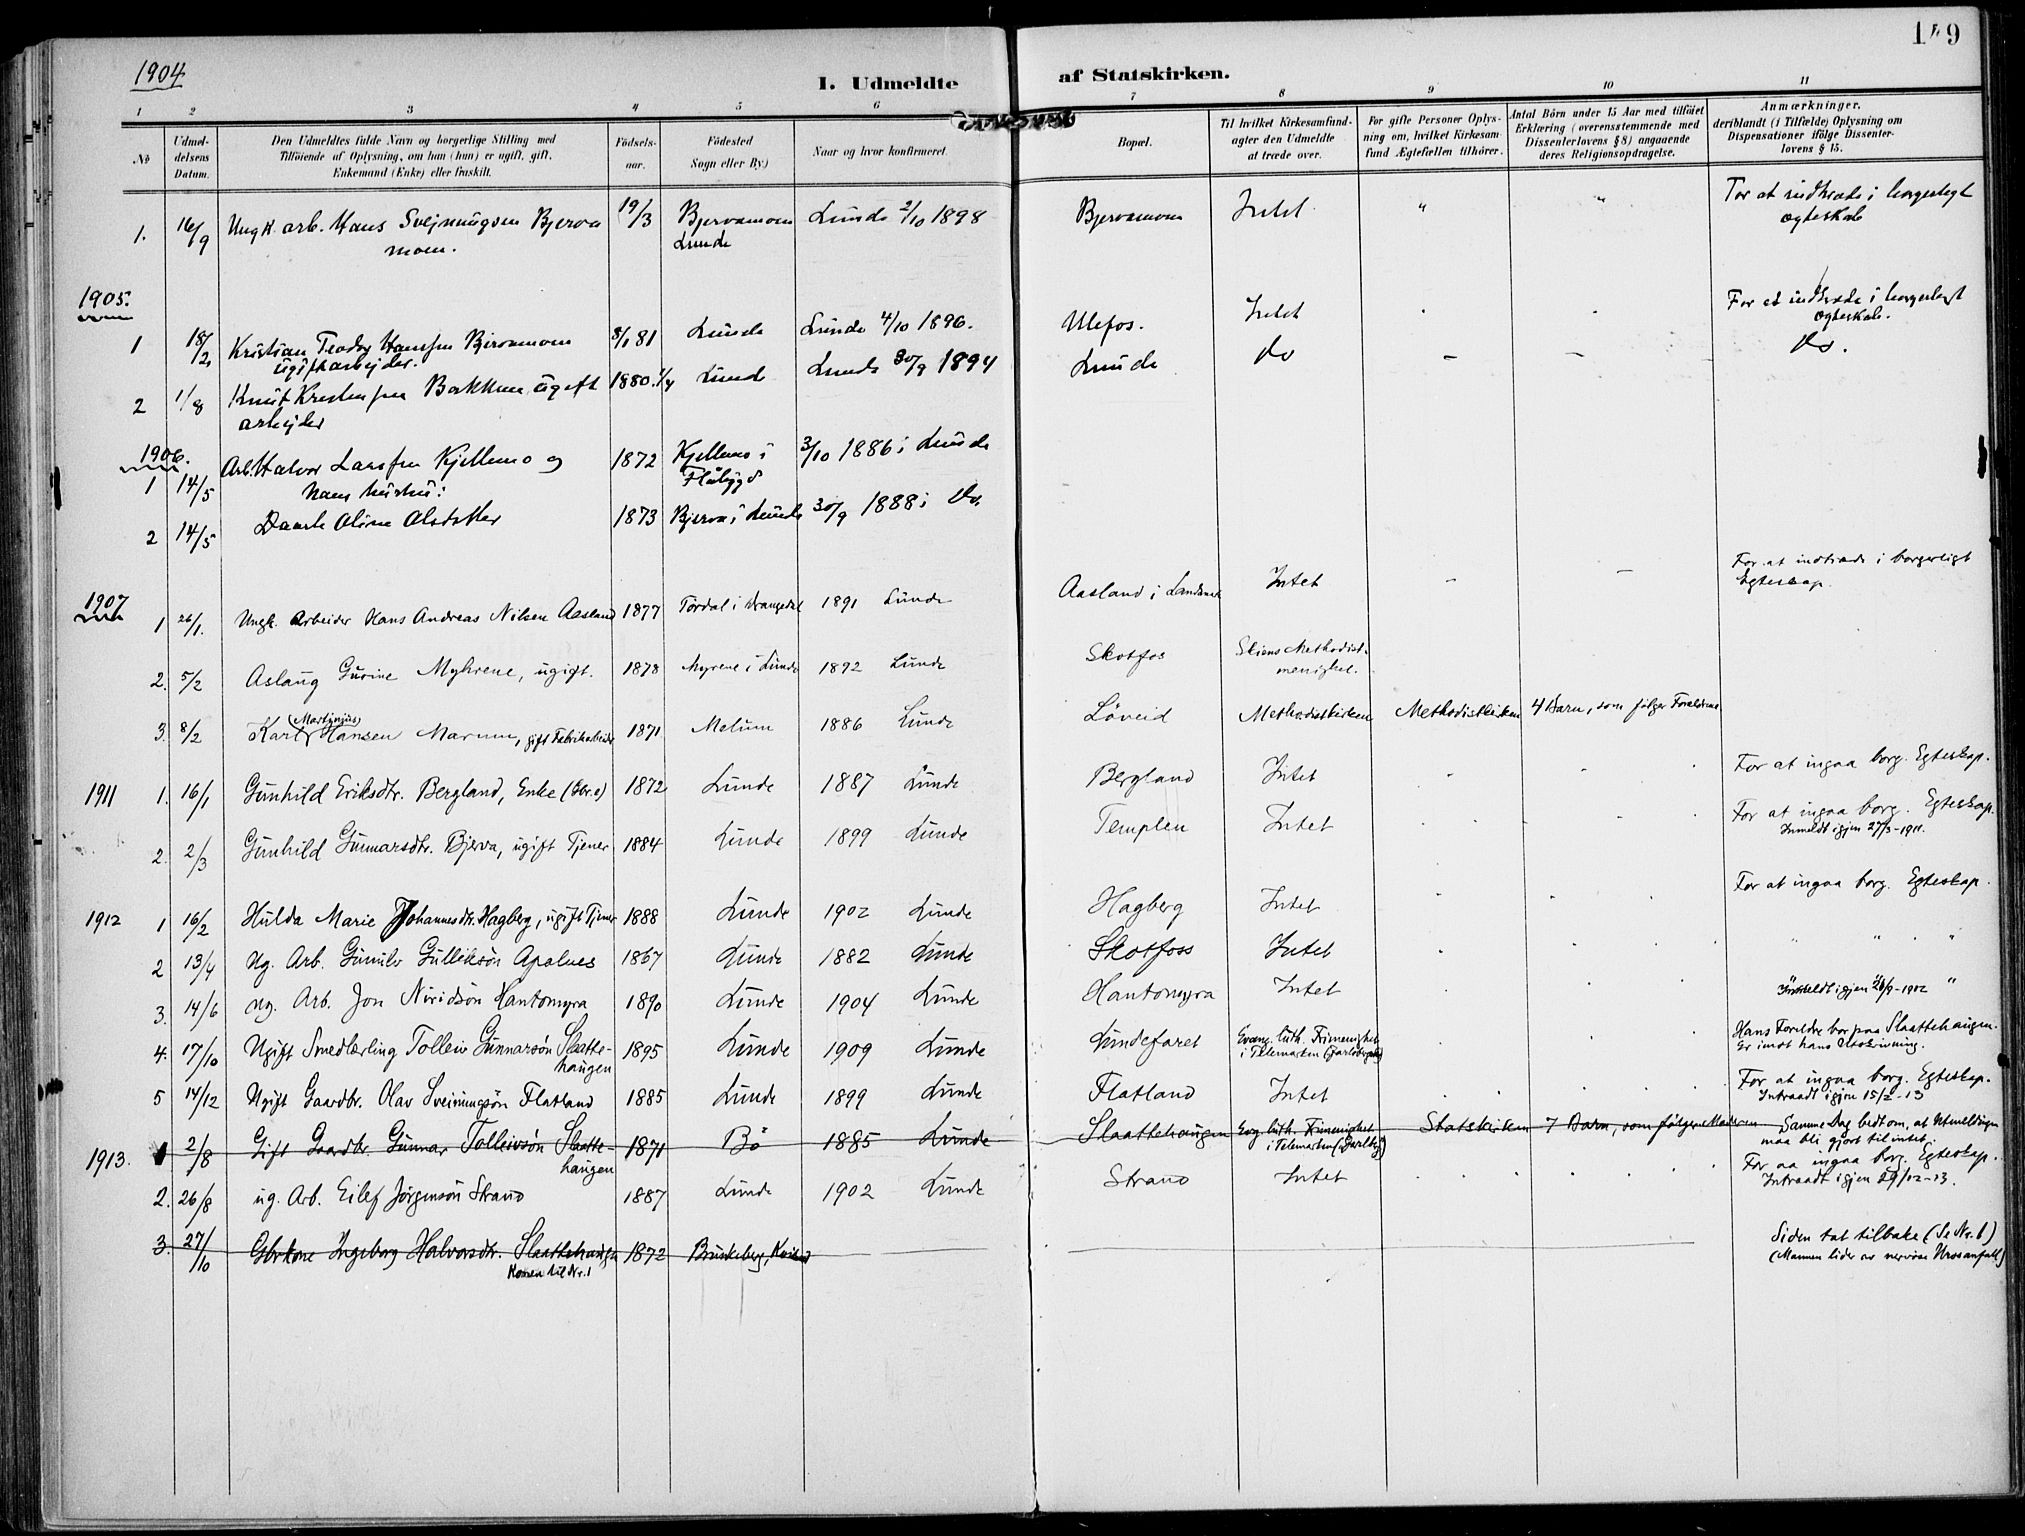 1904
149
1. Udmeldte af Statskirken.
1 2 3 4 5 6 7 8 9 10 11
№
Udmeldelsens Datum.
Den Udmeldtes fulde Navn og borgerlige Stilling med
Tilføiende af Oplysning, om han (hun) er ugift, gift,
Enkemand (Enke) eller fraskilt.
Fødselsaar.
Fødested
Sogn eller By)
Naar og hvor konfirmeret.
Bopæl.
Til hvilket Kirkesamfund-
agter den Udmeldte
at træde over.
For gifte Personer Oplys-
ning om, hvilket Kirkesam-
fund Ægtefællen tilhører.
Antal Börn under 15 Aar med tilföiet
Erklæring (overensstemmende med
Dissenterlovens § 8) angaaende
deres Religionsopdragelse.
Anmærkninger,
deriblandt (i Tilfælde) Oplysning om
Dispensationer ifölge Dissenter-
lovens § 15.
1. 16/9 Ungk. arb. Hans Svejnungsen Bjerva 19/3 Bjervamoen Lunde 2/10 1898 Bjervamoen Intet " " For at indtræde i borgerligt
moen. Lunde ægteskab
1905.
1 18/2 Kristian Teodor Hansen Bjervamoen 8/1 81 Lunde Lunde 4/10 1896. Ulefos. Intet For at indtræde i borgerligt
ugift arbejder. ægteskab.
2 1/8 Knut Kristensen Bakken ugift 1880. Lunde Lunde 30/9 1894 Lunde do — — do.
arbejder
1906.
1 14/5 Arb. Halvor Larsen Kjellemo og 1872 Kjellemo i 3/10 1886 i Lunde
hans hustru: Flåbygd
2 14/5 Dorte Oline Olsdatter 1873 Bjerva i Lunde 30/9 1888 i do.
1907
1 26/1. Ungk. Arbeider Hans Andreas Nilsen Aasland 1877 Tördal i Drangedal 1891 Lunde Aasland i Landsmark Intet — — For at indtræde i borgerligt
Egteskap.
2. 5/2 Aslaug Gurine Myhrene, ugift. 1878 Myrene i Lunde 1892 Lunde Skotfos Skiens Methodist-
menighet.
3. 8/2 Karl (Martinius) Hansen Marum, gift Fabrikarbeider 1871 Melum 1886 Lunde Löveid Methodistkirken Methodistkirken 4 Barn, som følger Foreldrene
1911 1. 16/1 Gunhild Eriksdtr. Bergland, Enke (Gbr.e) 1872 Lunde 1887 Lunde Bergland Intet For at ingaa borg. Egteskap.
2. 2/3 Gunhild Gunnarsdtr. Bjerva, ugift Tjener 1884 Lunde 1899 Lunde Templen Intet For at ingaa borg. Egteskap.
Inmeldt igjen 27/3-1911.
1912 1 16/2 Hulda Marie Johannesdtr. Hagberg, ugift Tjener 1888 Lunde 1902 Lunde Hagberg Intet For at ingaa borg. Egteskap.
2 13/4 Ug. Arb. Gunulv Gulliksön Apalnes 1867 Lunde 1882 Lunde Skotfoss Intet " " "
3. 14/6 ug. Arb. Jon Niridsön Hantomyra 1890 Lunde 1904 Lunde Hantomyra Intet Inmeldt igjen 26/9-1912 "
4. 17/10 Ugift Smedlærling Tolleiv Gunnarsön Slaatte- 1895 Lunde 1909 Lunde Lundefaret Evang. luth. Frimenighet Hans Foreldre bor paa Slaattehaugen.
haugen i Telemarken Er imot hans Utskrivning.
5 14/12 Ugift Gaardbr. Olav Sveinungsön Flatland 1885 Lunde 1899 Lunde Flatland Intet For at ingaa borg. Egteskap.
Intraadt igjen 15/2-13
1913. 1 2/8 Gift Gaardbr. Gunnar Tolleivsön Slaatte- 1871 Bö 1885 Lunde Slaattehaugen Evg. luth. Frimenighet Statskirken 7 Barn, som følger Moderen Samme Dag bedt om, at Utmeldingen
haugen i Telemarken maa bli gjort til intet.
2. 26/8 ug. Arb. Eilef Jörgensön Strand 1887 Lunde 1902 Lunde Strand Intet For aa ingaa borg. Egteskap.
Intraadt igjen 29/12-13.
3. 27/10 Gbrkone Ingeborg Halvorsdtr. Slaattehaugen 1872 Brunkeberg, Kvitseid Siden tat tilbake (Se Nr. 1)
Konen til Nr. 1 (Mannen lider av nervöse Urosanfall)